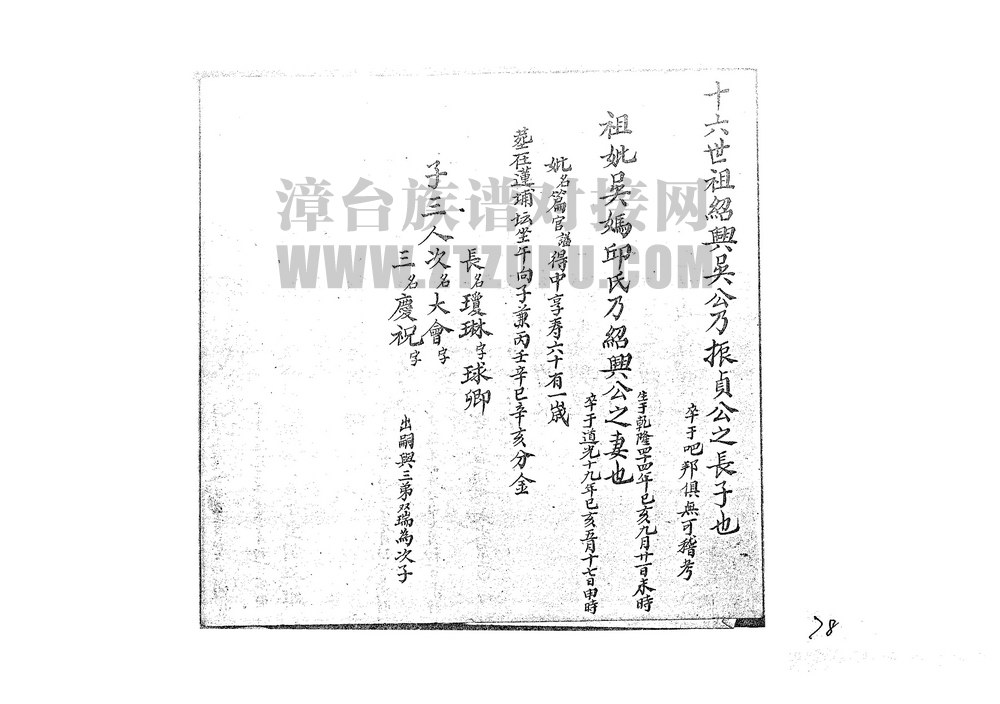 十六世祖紹興吳公乃振貞公之長子也
卒于吧邦俱無可稽考
祖妣吳媽邱氏乃紹興公之妻也
生于乾隆四十四年已亥九月廿一日未時
卒于道光十九年已亥五月十七日申時
妣名篇官諡得中享寿六十有一歲
塟在蓮埔坛坐午向子兼丙壬辛巳辛亥分金
子三人
長名瓊琳字球卿
次名大會字
三名慶祝字
出嗣與三弟双瑞為次子
漳台族谱对接网
WWW.ZTZUPU.COM
78